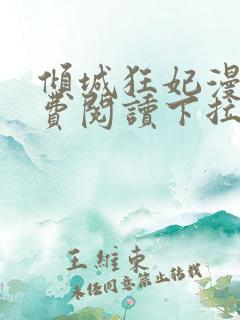 傾城狂妃漫
費閱讀下拉
王維東
未經同意禁止轉載